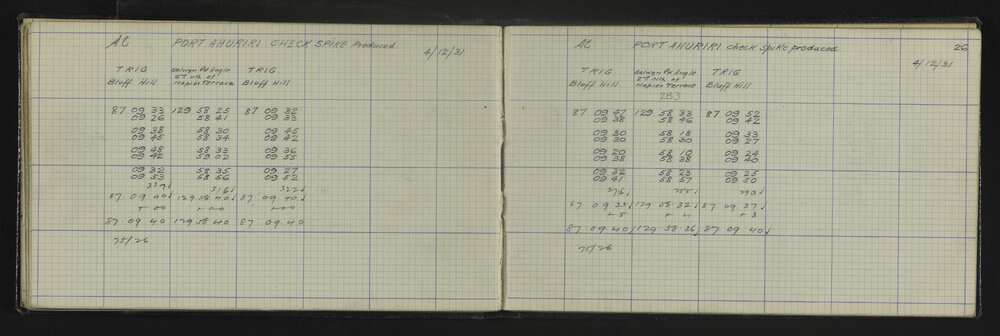 At PORT AHURIRI CHECK SPIKE Produced 4/12/31
TRIG Selwyn Rd Angle TRIG
2nd Nth of
Bluff Hill Napier Terrace Bluff Hill
87 09 33 129 58 25 87 09 32
09 26 58 41 09 33
09 38 58 30 09 45
09 45 58 34 09 42
09 28 58 33 09 36
09 42 59 02 09 55
09 32 58 35 09 27
09 53 58 56 09 52
317 316 322
87 09 40 129 58 40 87 09 40
+ 00 + 00 + 00
87. 09 40 129 58 40 87 09 40
75/26
At PORT AHURIRI check spike produced 26
4/12/31
TRIG Selwyn Rd Angle TRIG
2nd Nth of
Bluff Hill Napier Terrace Bluff Hill
283
87 09 47 129 58 33 87 09 52
09 38 58 46 09 42
09 30 58 18 09 33
09 30 58 30 09 27
09 20 58 10 09 24
09 38 58 38 09 40
09 32 58 23 09 25
09 41 58 57 09 50
276 255 293
87 09 35 129 58 32 87. 09 37
+ 5 + 4 + 3
87. 09. 40 129 58. 36 87. 09. 40
75/26